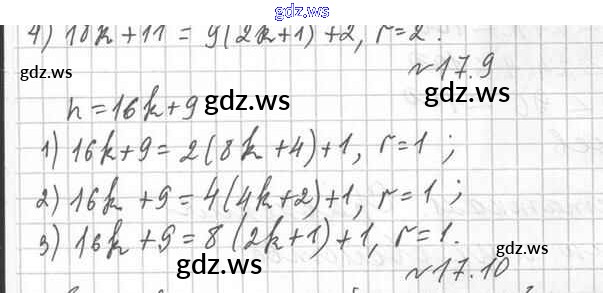 gdz.ws
4) 18k+11 = 9(2k+1)+2, r=2.
gdz.ws
gdz.ws
№17.9
gdz.ws
n=16k+9
gdz.ws
1) 16k+9=2(8k+4)+1, r=1;
gdz.ws
2) 16k+9=4(4k+2)+1, r=1;
3) 16k+9=8(2k+1)+1, r=1.
gdz.ws
gdz.ws
№17.10